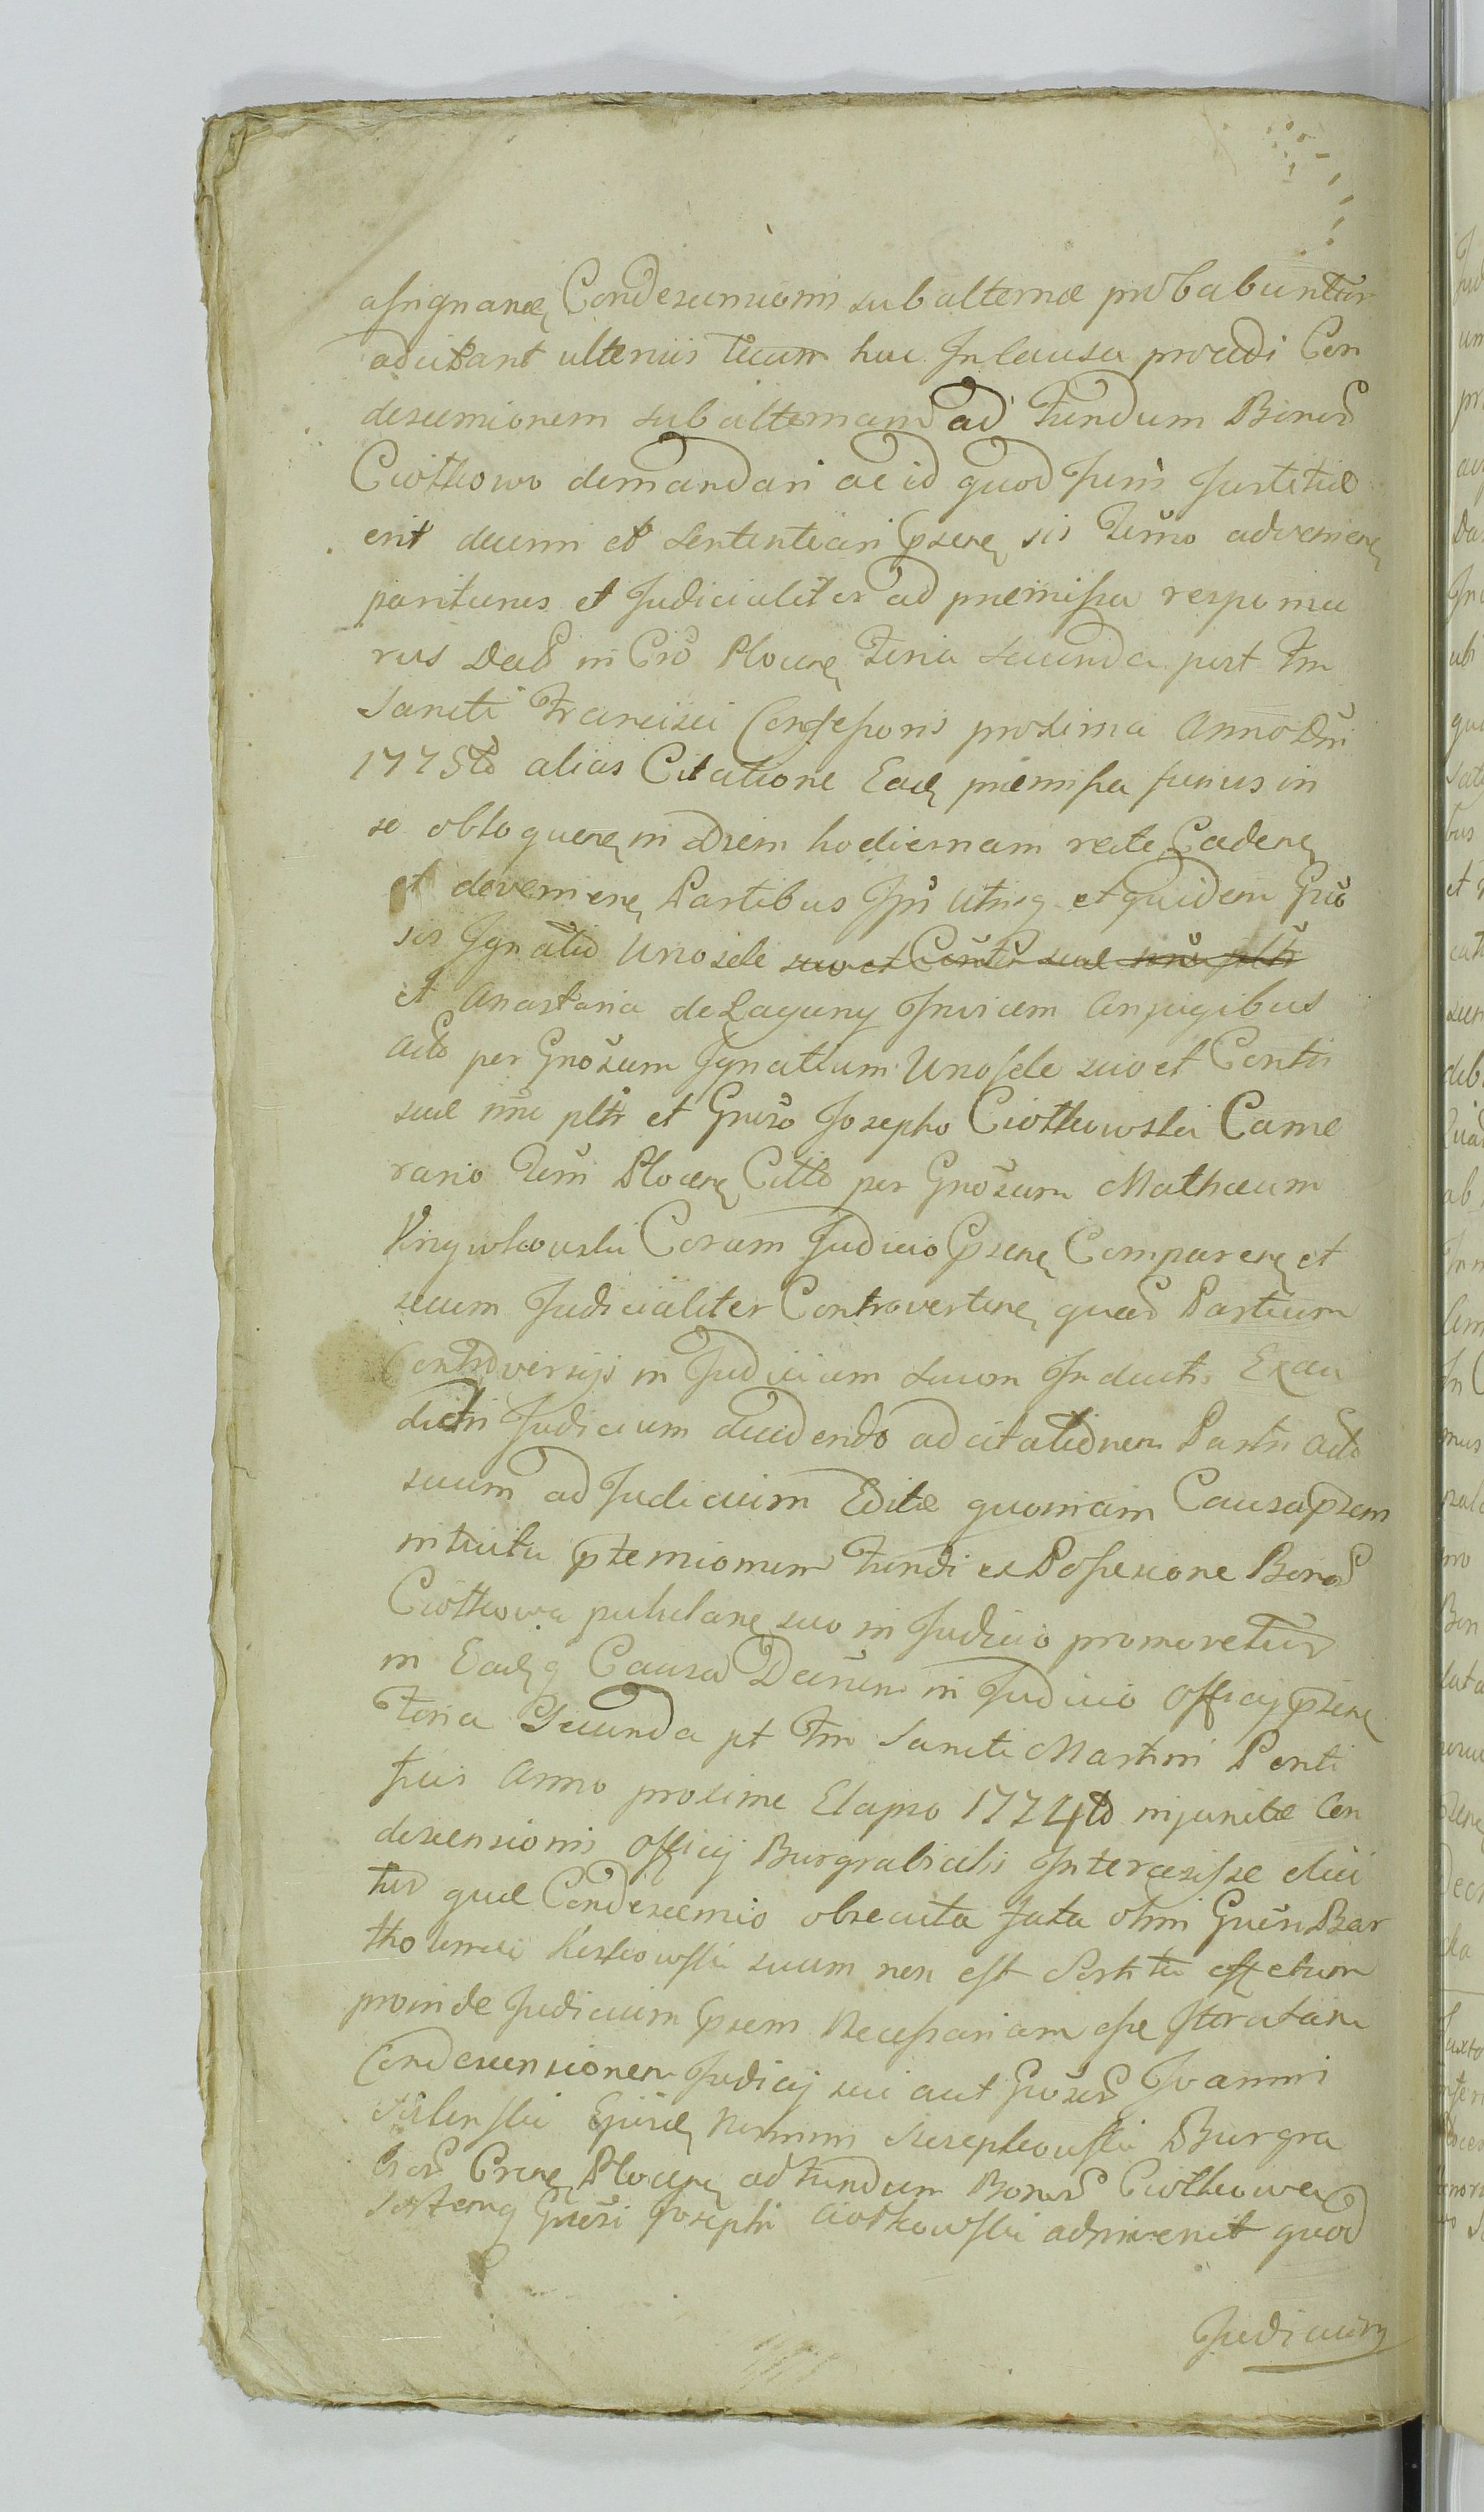 assignandæ Condescensionis subalternæ probabuntur
adcitant ulterius tecum hac In Causa procedi Con
descensionem subalternam ad Fundum Bonor
Ciotkowo demandari ac id quod Juris Justitiæ
erit decerni et sententiari Psens sis Termo advenien
pariturus et Judicialiter ad præmissa responsu
rus Dat in Cro Plocen Feria Secunda post Fm
Sancti Francisci Confessoris proxima Anno Dni
1775to alias Citatione Ead præmissa prius in
se obloquen in Diem hodiernam recte Caden
et devenien Partibus Ipsis Utrisq et quidem Gnō
sis Ignatio Unosde suo et Contis suæ nōe pltr
et Anastasia de Laguny Invicem Conjugibus
Acto per Gnosum Ignatium Unosde suo et Contis
suæ nōe pltr et Gnōso Josepho Ciotkowski Came
rario Terri Plocen Citto per Gnosum Mathæum
Krzywkowski Coram Judicio Psen Comparen et
secum Judicialiter Controverten quar Partium
Controversijs in Judicium suum Inductis Exau
ditis Judicium decidendo ad citationem Partis Acto
suum ad Judicium Editæ quoniam Causa psens
intuitu ptensionum Fundi ex Possessione Bonor
Ciotkowa pululan suo in Judicio promovetur
in Eadq Causa Decreto in Judicio Officij psen
Feria Secunda pt Fm Sancti Martini Ponti
ficis Anno proxime Elapso 1774to injunctæ Con
descensionis Officij Burgrabialis Intercessisse elici
tur quæ Condescensio obsecuta fata olim Gnēri Bar
tholomei Kiszkowski suum non est Sortita effectum
proinde Judicium Psens Necessariam esse Iteratam
Condescensionem Judicij sui aut Gnosor Joannis
Burgra
bior Cren Plocen ad Fundum Bonor Ciotkowa
Sortemq Gnōsi Josephi Ciotkowski adinvenit quod
Judicium